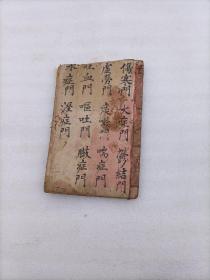 傷寒門 火症門 鬱結門
虛勞門 痰嗽門 喘症門
吐血門 嘔吐門 臌症門
水症門 溼症門